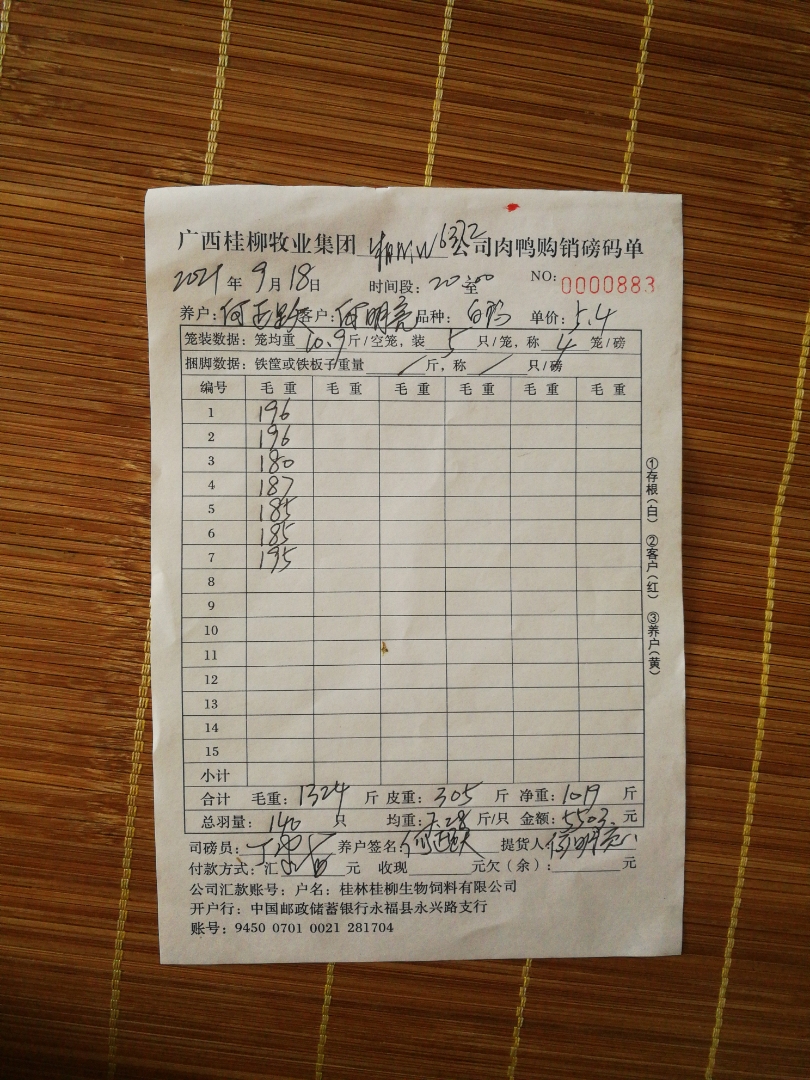 广西桂柳牧业集团 6372 公司肉鸭购销磅码单
2021年9月18日 时间段：20:00至 NO：0000883
养户： 客户：何明亮 品种：白鸭 单价：5.4
笼装数据：笼均重10.9斤/空笼，装5只/笼，称4笼/磅
捆脚数据：铁筐或铁板子重量/斤，称/只/磅
编号 毛重 毛重 毛重 毛重 毛重 毛重
1 196
2 196
3 180
4 187
5 185
6 185
7 195
8
9
10
11
12
13
14
15
小计
合计 毛重：1324斤 皮重：305斤 净重：1019斤
总羽量：140只 均重：7.28斤/只 金额：5503元
司磅员： 养户签名： 提货人：何明亮
付款方式：汇 元 收现 元欠（余）： 元
公司汇款账号：户名：桂林桂柳生物饲料有限公司
开户行：中国邮政储蓄银行永福县永兴路支行
账号：9450 0701 0021 281704
①存根（白） ②客户（红） ③养户（黄）